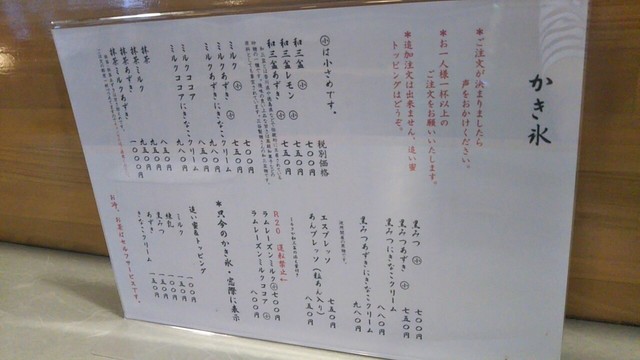 かき氷
＊ご注文が決まりましたら
声をおかけください。
＊お一人様一杯以上の
ご注文をお願いいたします。
＊追加注文は出来ません。追い蜜
トッピングはどうぞ。
㋛は小さめです。
税別価格
和三盆 ㋛ 七〇〇円
和三盆レモン ㋛ 七五〇円
和三盆あずき ㋛ 七五〇円
ミルク ㋛ 七〇〇円
ミルクあずき ㋛ 七五〇円
ミルクあずきにきなこクリーム 九八〇円
ミルクココア 八五〇円
ミルクココアにきなこクリーム 九八〇円
抹茶 八五〇円
抹茶ミルク 八五〇円
抹茶あずき 九五〇円
抹茶ミルクあずき 一〇〇〇円
黒みつ ㋛ 七〇〇円
黒みつあずき ㋛ 七五〇円
黒みつにきなこクリーム 八八〇円
黒みつあずきにきなこクリーム 九八〇円
エスプレッソ 七五〇円
あんプレッソ（粒あん入り） 八五〇円
R20 運転禁止！
ラムレーズンミルク ㋛ 七〇〇円
ラムレーズンミルクココア ㋛ 八〇〇円
＊只今のかき氷・窓際に表示
追い蜜＆トッピング
ミルク 一〇〇円
練乳 一〇〇円
黒みつ 一〇〇円
あずき 一五〇円
きなこクリーム 一五〇円
お冷、お茶はセルフサービスです。